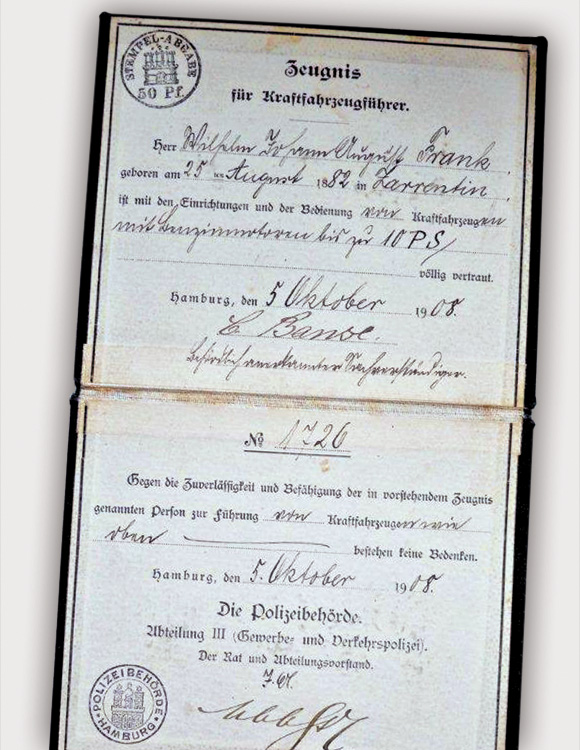 STEMPEL-ABGABE
50 Pf.
Zeugnis
für Kraftfahrzeugführer.
Herr Wilhelm Johann August Frank.
geboren am 25 ten August 1882 in Zarrentin.
ist mit den Einrichtungen und der Bedienung von Kraftfahrzeugen
mit Benzinmotoren bis zu 10 PS/
völlig vertraut.
Hamburg, den 5 Oktober 1908.
C Banse.
Behördlich anerkannter Sachverständiger.
№ 1726
Gegen die Zuverlässigkeit und Befähigung der in vorstehendem Zeugnis
genannten Person zur Führung von Kraftfahrzeugen wie
oben bestehen keine Bedenken.
Hamburg, den 5. Oktober 1908.
Die Polizeibehörde.
Abteilung III (Gewerbe- und Verkehrspolizei).
Der Rat und Abteilungsvorstand.
POLIZEIBEHÖRDE
HAMBURG